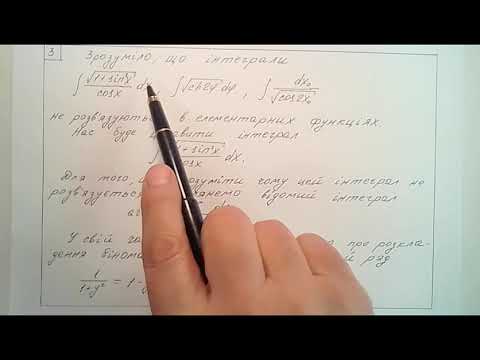 3
Зрозуміло, що інтеграли
∫ √(1+sin²x)/cosx dx, ∫ √ch2φ dφ, ∫ dx₀/√cos2x₀
не розв'язуються в елементарних функціях.
Нас буде цікавити інтеграл
+sin²x / cosx dx.
Для того, зуміти чому цей інтеграл не
розв'язується відомий інтеграл
У свій про розкла-
дення біном й ряд
1/(1+y²) = 1 -